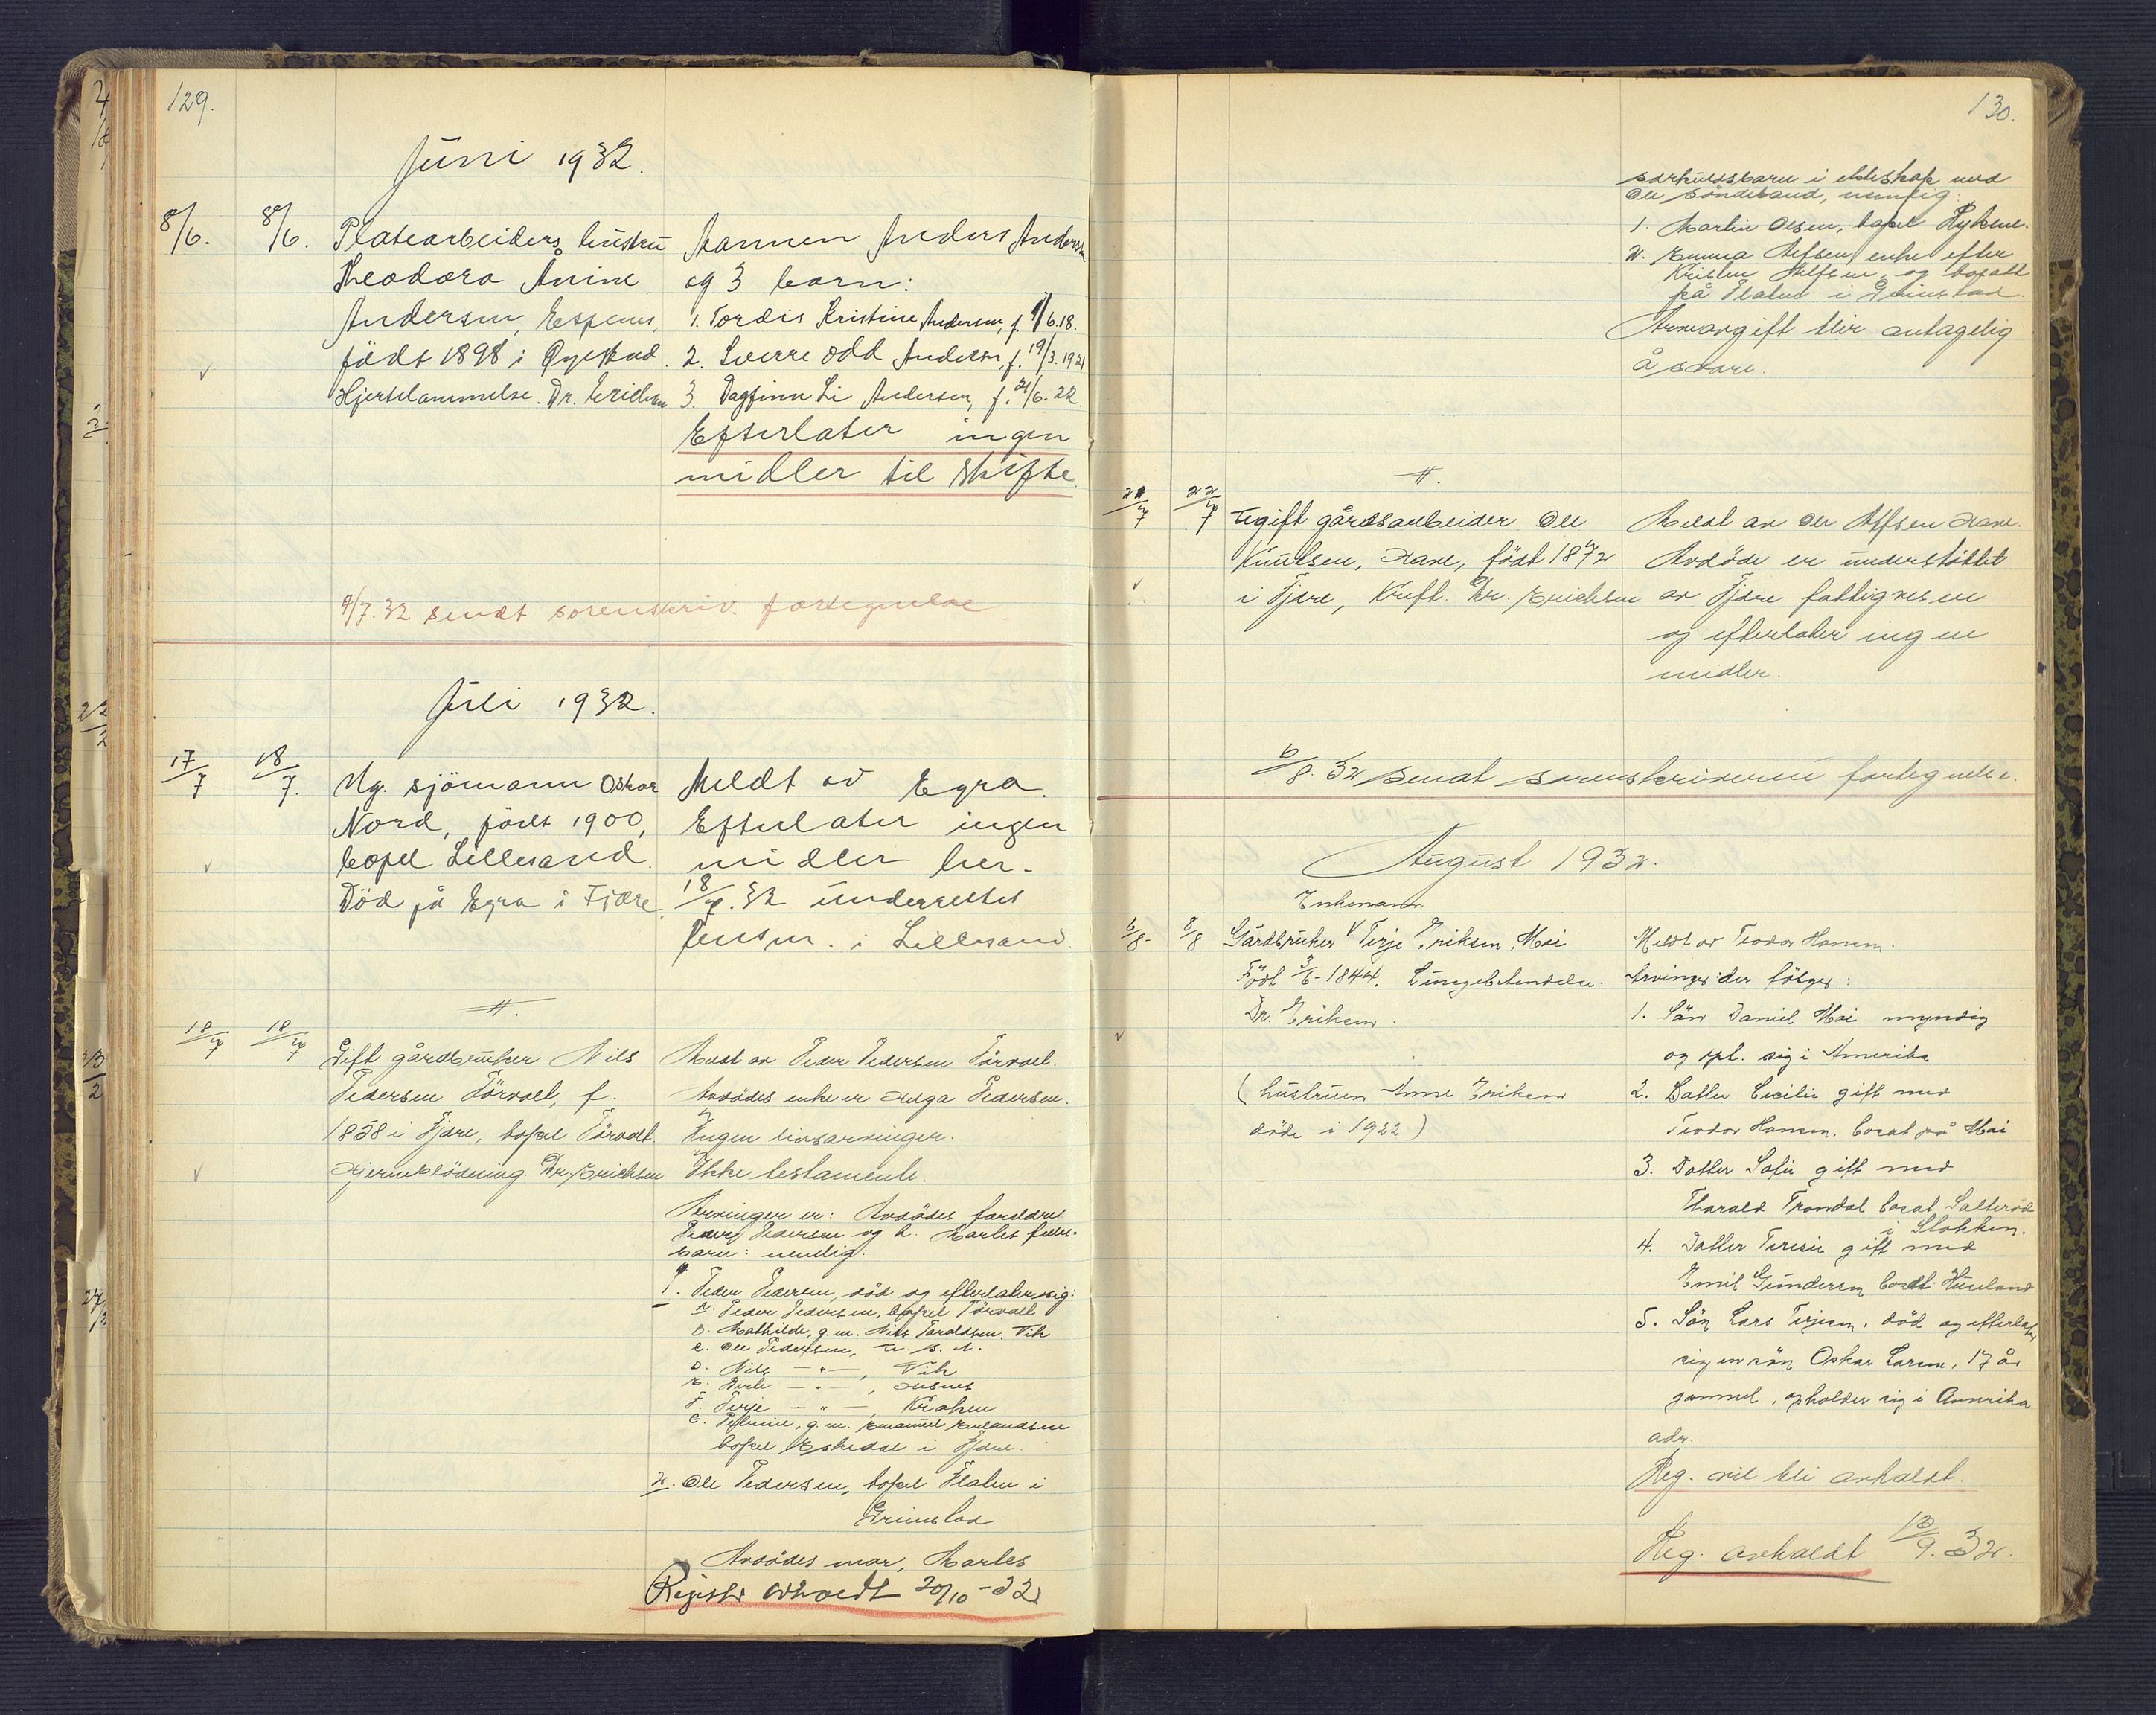 129.
Juni 1932.
8/6. 8/6. Platearbeiders hustru
Teodora Ånine
Andersen, Espenes,
född 1898 i Øyestad.
Hjertelammelse. Dr. Erichsen
Mannen Anders Andersen
og 3 barn:
1. Tordis Kristine Andersen, f. 1/6.18.
2. Sverre Odd Andersen, f. 19/3.1921
3. Dagfinn Li Andersen, f. 21/6.22.
Efterlater ingen
midler til skifte.
9/7.32 sendt sorenskriv. fortegnelse
Juli 1932.
17/7 18/7. Ug. sjömann Oskar
Nord, född 1900,
bopel Lillesand.
Död på Egra i Fjære.
Meldt av Egra.
Efterlater ingen
midler her.
18/7.32 underrettet
lensm. i Lillesand.
18/7 18/7 Gift gårdbruker Nils
Pedersen Törvolt, f.
1858 i Fjære, bopel Törvolt.
Hjerneblödning. Dr. Erichsen
Meldt av Peder Pedersen Törvolt.
Avdödes enke er Helga Pedersen.
Ingen livsarvinger.
Ikke testamente.
Arvinger er: Avdödes foreldre
Peder Pedersen og h. Martes felles-
barn: nemlig:
1. Peder Pedersen, död og efterlater sig:
a. Peder Pedersen, bopel Törvolt
b. Mathilde, g.m. Nils Taraldsen, Vik
c. Ole Pedersen, U. S. A.
d. Nils — " —, Vik
e. — " —,
f. Terje — " —, Kroken
g. g.m. Emanuel Erlandsen
bopel Eskedal i Fjære.
2. Ole Pedersen, bopel Flaten i
Grimstad
Avdödes mor, Martes
Registr avholdt 20/10-32
130.
særkuldsbarn i ekteskap med
Ole Söndeband, nemlig:
1. Martin Olsen, bopel Rykene.
2. Emma Alfsen, enke efter
Kristen Alfsen, og bosatt
på Flaten i Grimstad.
Arveavgift blir antagelig
å svare.
21/7 22/7 Ugift gårdsarbeider Ole
Knutsen, Have, födt 1872
i Fjære, Kreft. Dr. Erichsen
Meldt av Ole Alfsen Have.
Avdöde er understöttet
av Fjære fattigvesen
og efterlater ingen
midler.
6/8.32 sendt sorenskriveren fortegnelse.
August 1932.
Enkemann
6/8- 8/8 Gårdbruker v Terje Eriksen, Moi
Födt 3/6-1844. Lungebetendelse.
Dr. Eriksen.
(hustruen Anne Eriksen
döde i 1922)
Meldt av Teodor Hansen.
Arvinger der fölger:
1. Sön Daniel Moi myndig
og opl. sig i Amerika
2. Datter Cecilie gift med
Teodor Hansen, bosat på Moi
3. Datter Sofie gift med
Harald Trondal bosat Salteröd
i Stokken.
4. Datter Teresie gift med
Emil Gundersen bosatt Huseland
5. Sön Lars Terjesen, död og efterlater
sig en sön Oskar Larsen, 17 år
gammel, opholder sig i Amerika
adr.
Reg. vil bli avholdt.
Reg. avholdt 13/9.32.